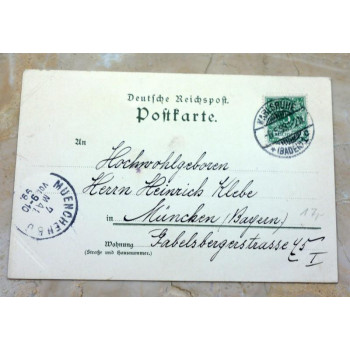 Deutsche Reichspost.
Postkarte.
KARLSRUHE
(BADEN)
An
Hochwohlgeboren
Herrn Heinrich Klebe
in München (Bayern)
12,-
Wohnung Gabelsbergerstrasse 45
(Straße und Hausnummer) I
MUENCHEN
MAI